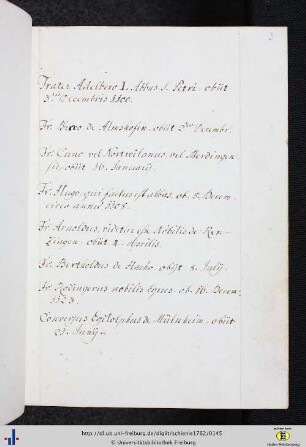 Frater Adelbero I. Abbas S. Petri obiit
3tia Decembris 1100.
Fr. de Almshofen obiit Decembr.
Fr. Cuno vel Nortwilanus vel Merdingen-
sis, obiit 16. Januarij.
Fr. Hugo, qui factus est abbas, ob. 5. Decem.
circa annu 1108.
Fr. Arnoldus, videtur esse Nobilis de Ken-
zingen obiit 4. Aprilis.
Fr. Bertholdus de obijt 8. Julij.
Fr. Rodingerus nobilis Eques ob. 10. Decem.
Conversus Egilolphus de Mülnheim obiit
21. Junij
http://dl.ub.uni-freiburg.de/diglit/schienie1762/0145
© Universitätsbibliothek Freiburg
Baden-Württemberg